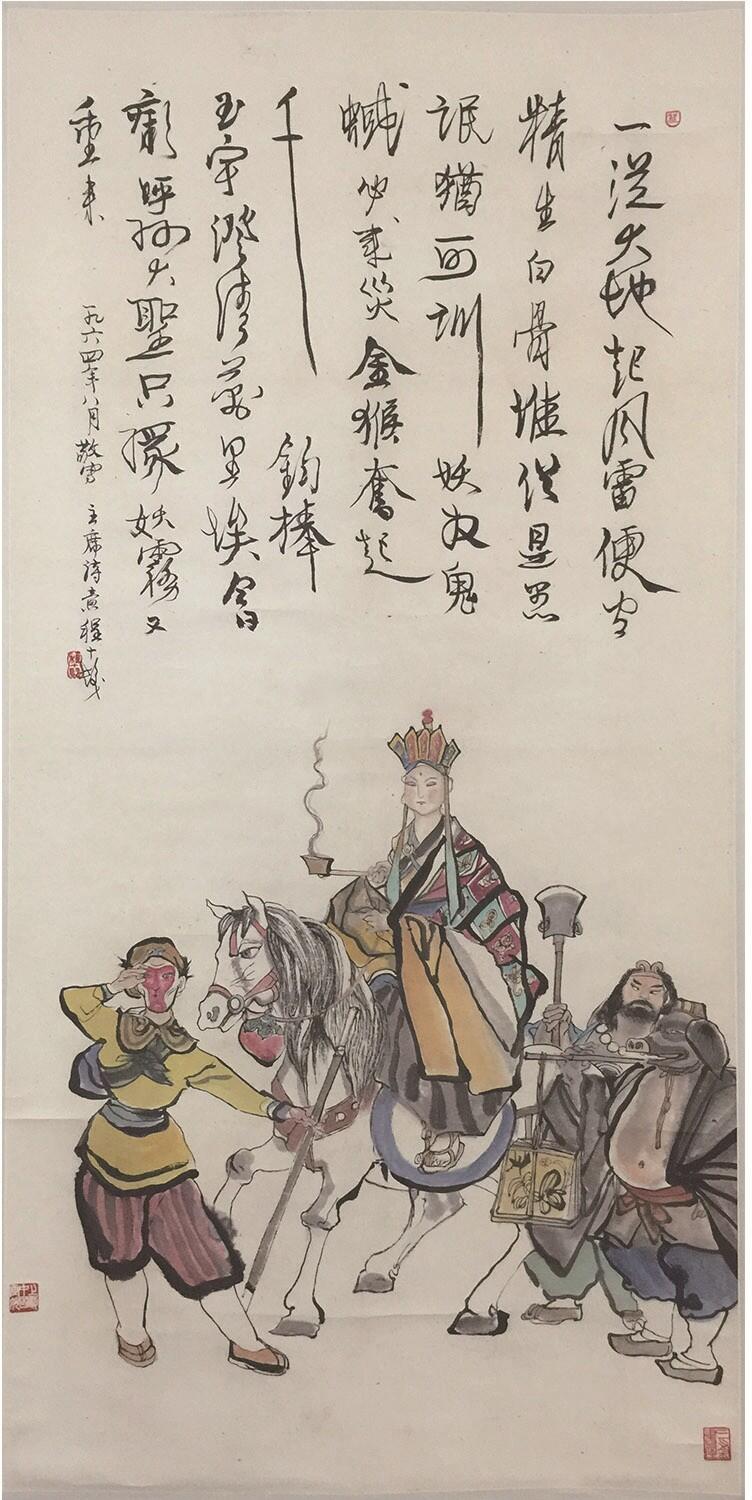 一從大地起风雷便有
精生白骨堆僧是愚
氓猶可訓妖为鬼
蜮必成災金猴奮起
千鈞棒
玉宇澄清萬里埃今日
歡呼孙大聖只緣妖霧又
重来
一九六四年八月敬寫 主席诗意 程十髮